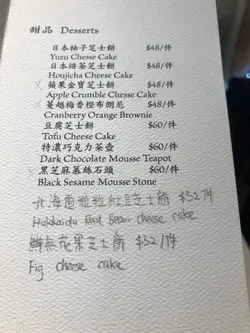 甜品 Desserts
日本柚子芝士餅 $48/件
Yuzu Chesse Cake
日本焙茶芝士餅 $48/件
Houjicha Cheese Cake
蘋果金寶芝士餅 $48/件
Apple Crumble Chesse Cake
蔓越梅香橙布朗尼 $48/件
Cranberry Orange Brownie
豆腐芝士餅 $60/件
Tofu Cheese Cake
特濃巧克力茶壺 $60/件
Dark Chocolate Mousse Teapot
黑芝麻慕絲石頭 $60/件
Black Sesame Mousse Stone
北海道 紅豆芝士餅 $52/件
Hokkaido Red Bean cheese cake
無花果芝士餅 $52/件
Fig cheese cake